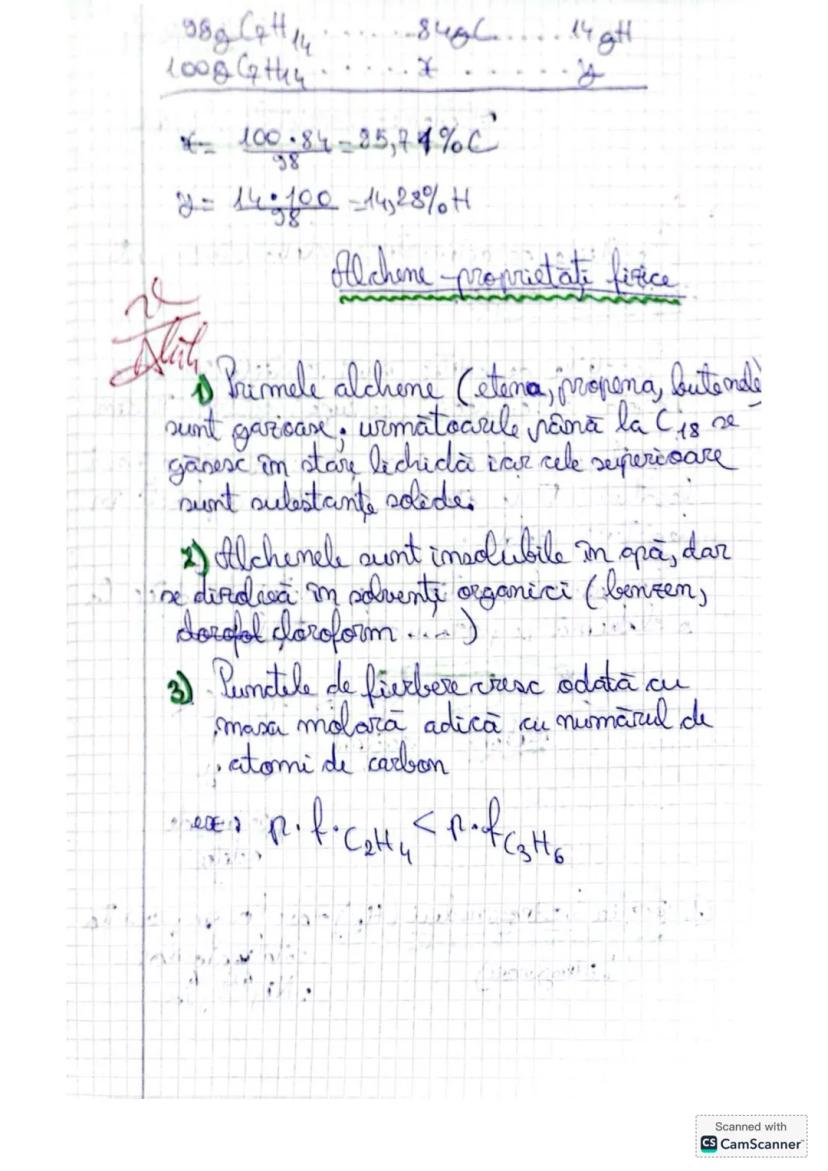 98g C7H14 ...... 84gC ..... 14gH
100g C7H14 ..... x ....... y
x = 100·84/98 = 85,71%C
y = 14·100/98 = 14,28%H
Alchene-proprietăți fizice
1) Primele alchene (etena, propena, butenele)
sunt gazoase; următoarele până la C18 se
găsesc în stare lichidă iar cele superioare
sunt substanțe solide.
2) Alchenele sunt insolubile în apă, dar
se dizolvă în solvenți organici (benzen,
cloroform ....)
3) Punctele de fierbere cresc odată cu
masa molară adică cu numărul de
atomi de carbon
ex: p.f.C2H4 < p.f.C3H6
Scanned with
CS CamScanner